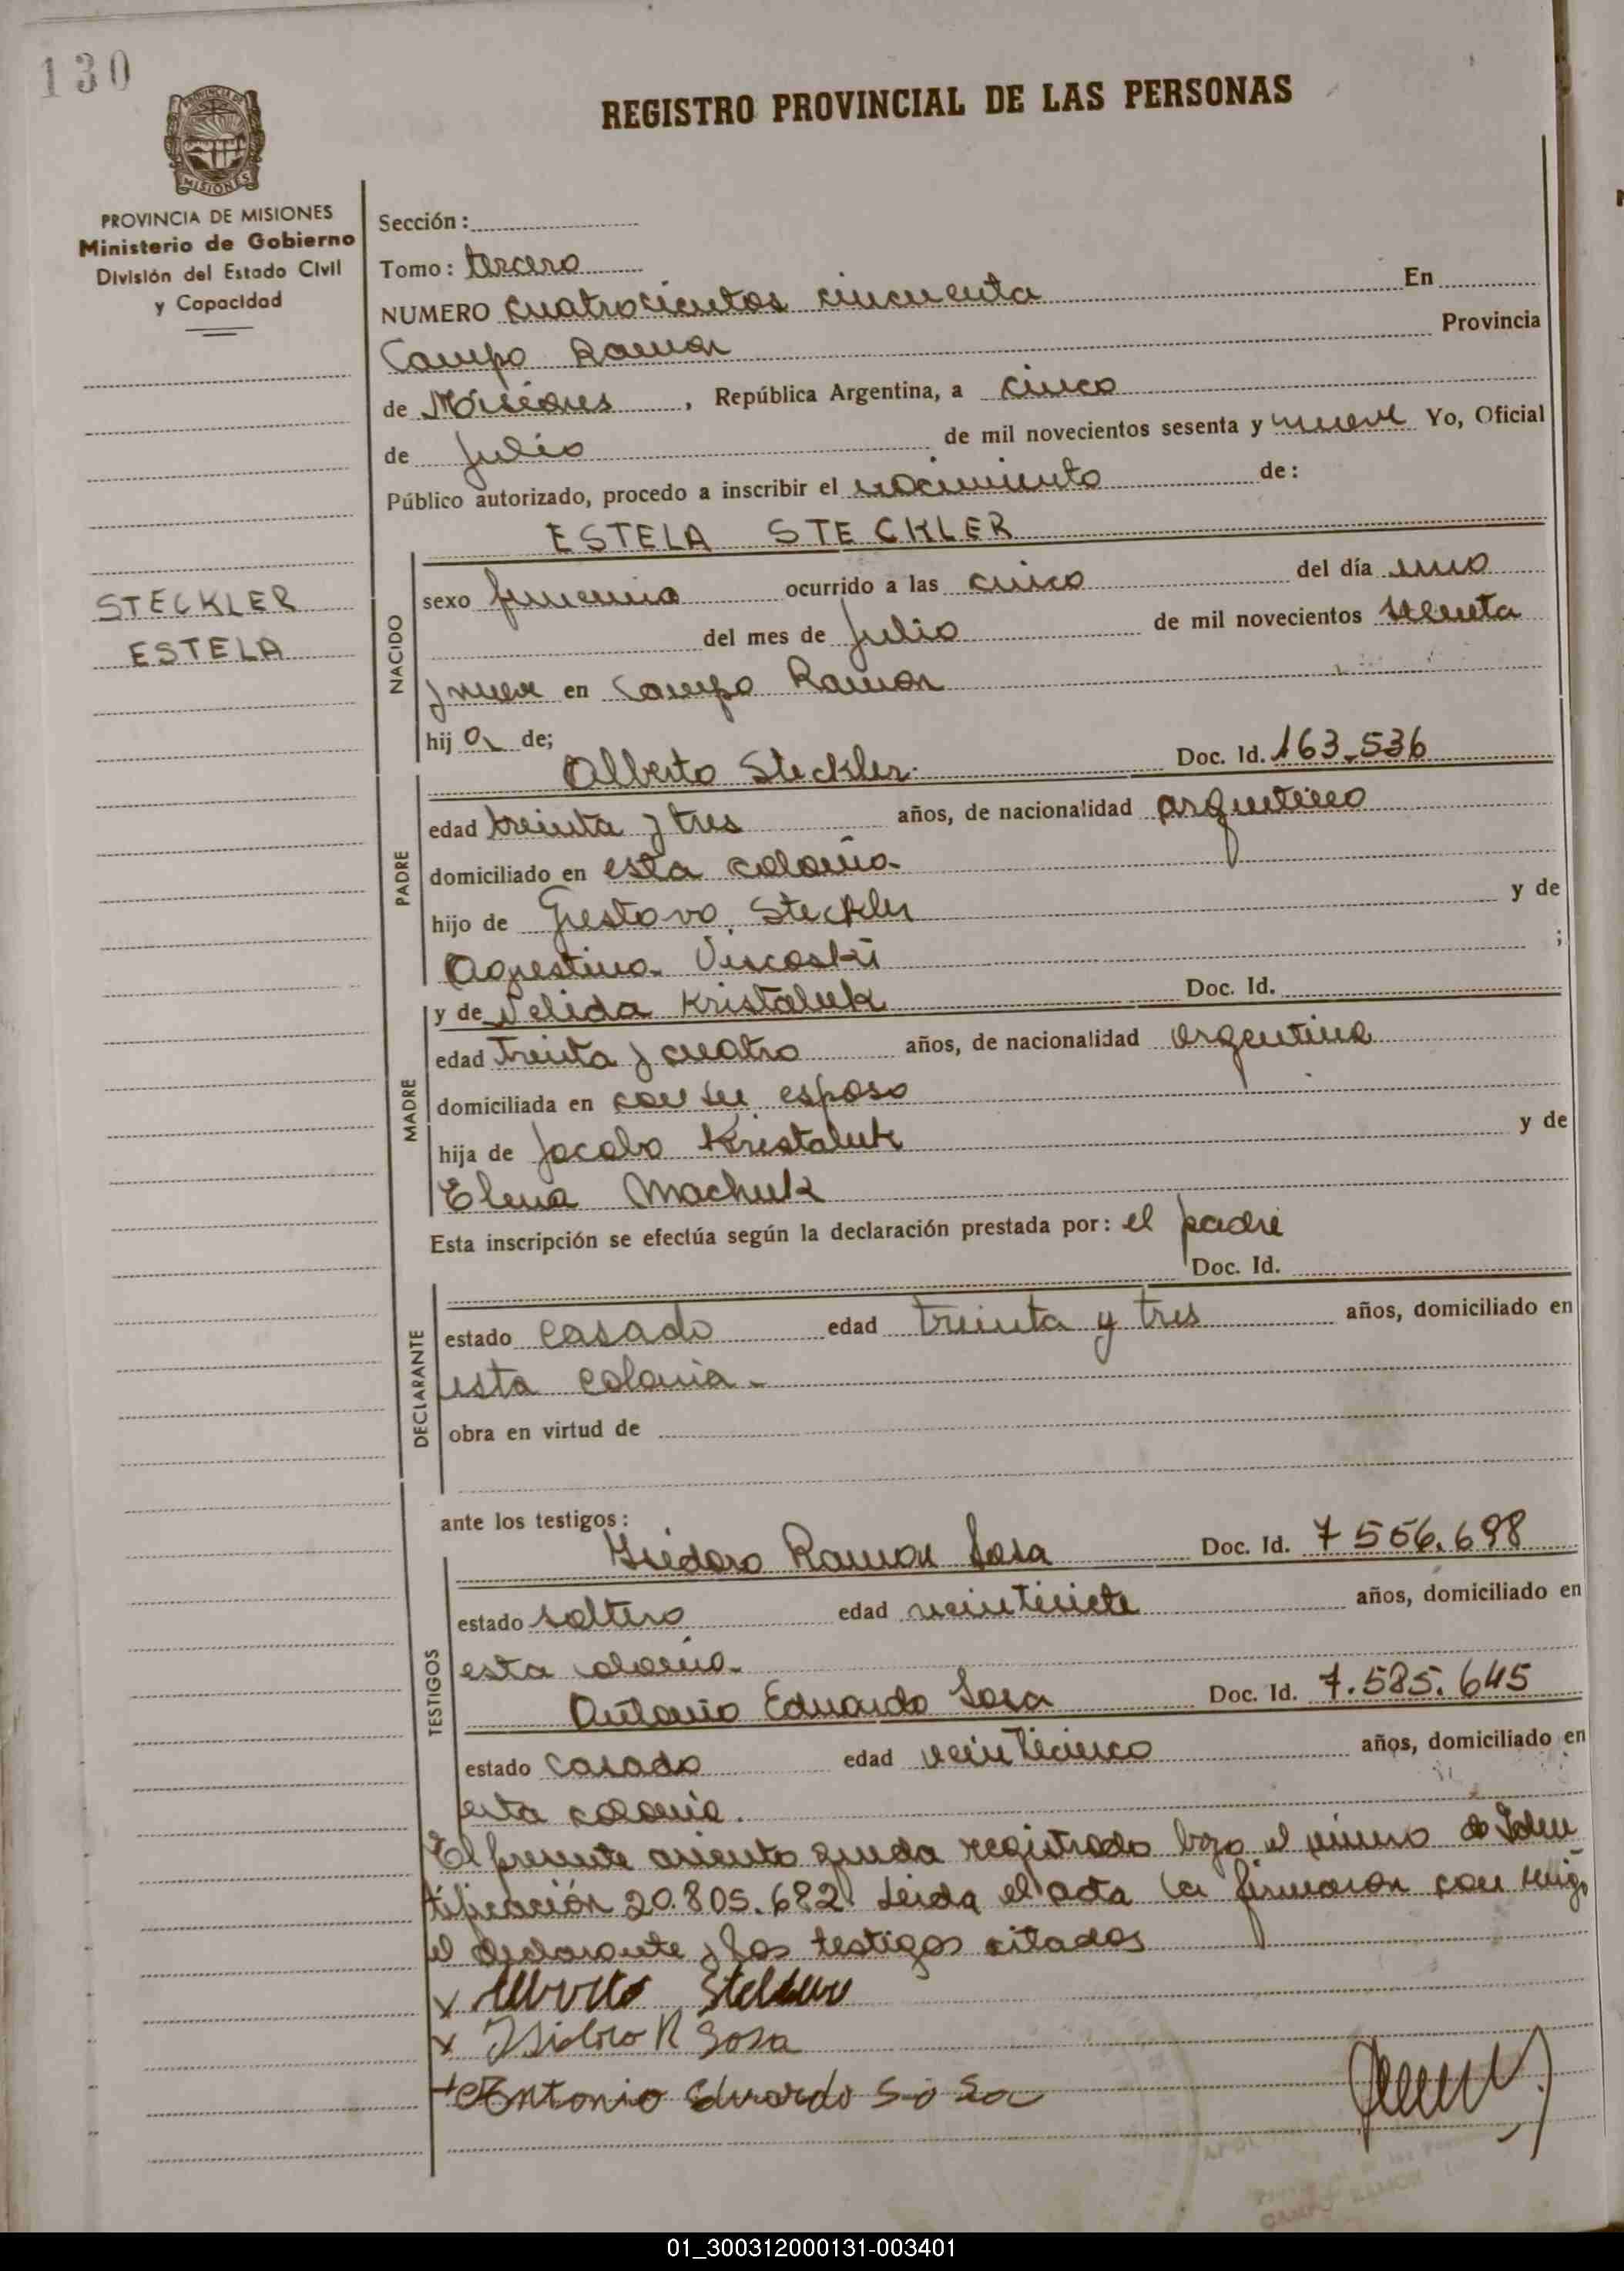 130
PROVINCIA DE
MISIONES
REGISTRO PROVINCIAL DE LAS PERSONAS
PROVINCIA DE MISIONES
Ministerio de Gobierno
División del Estado Civil
y Capacidad
STECKLER
ESTELA
Sección:
Tomo: tercero
NUMERO cuatrocientos cincuenta En
Campo Ramon Provincia
de Misiones, República Argentina, a cinco
de Julio de mil novecientos sesenta y nueve Yo, Oficial
Público autorizado, procedo a inscribir el nacimiento de:
ESTELA STECKLER
NACIDO
sexo femenino ocurrido a las cinco del día uno
del mes de Julio de mil novecientos sesenta
y nueve en Campo Ramon
hij a de;
PADRE
Alberto Steckler. Doc. Id. 163.536
edad treinta y tres años, de nacionalidad argentino
domiciliado en esta colonia
hijo de Gustavo Steckler y de
Agustina Viscoski ;
MADRE
y de Nelida Kristaluk Doc. Id.
edad Treinta y cuatro años, de nacionalidad argentina
domiciliada en con su esposo
hija de Jacobo Kristaluk y de
Elena Machuk
Esta inscripción se efectúa según la declaración prestada por: el padre
Doc. Id.
DECLARANTE
estado casado edad treinta y tres años, domiciliado en
esta colonia.
obra en virtud de
ante los testigos:
TESTIGOS
Isidoro Ramon Sosa Doc. Id. 7 556.698
estado soltero edad veintisiete años, domiciliado en
esta colonia.
Antonio Eduardo Sosa Doc. Id. 7.585.645
estado casado edad veinticinco años, domiciliado en
esta colonia.
El presente asiento queda registrado bajo el número de Iden
tificación 20.805.682. Leida el acta la firmaron con migo
el declarante y los testigos citados
x Alberto
x Isidro R Sosa
+ Antonio Eduardo Sosa
CAMPO RAMON
01_300312000131-003401